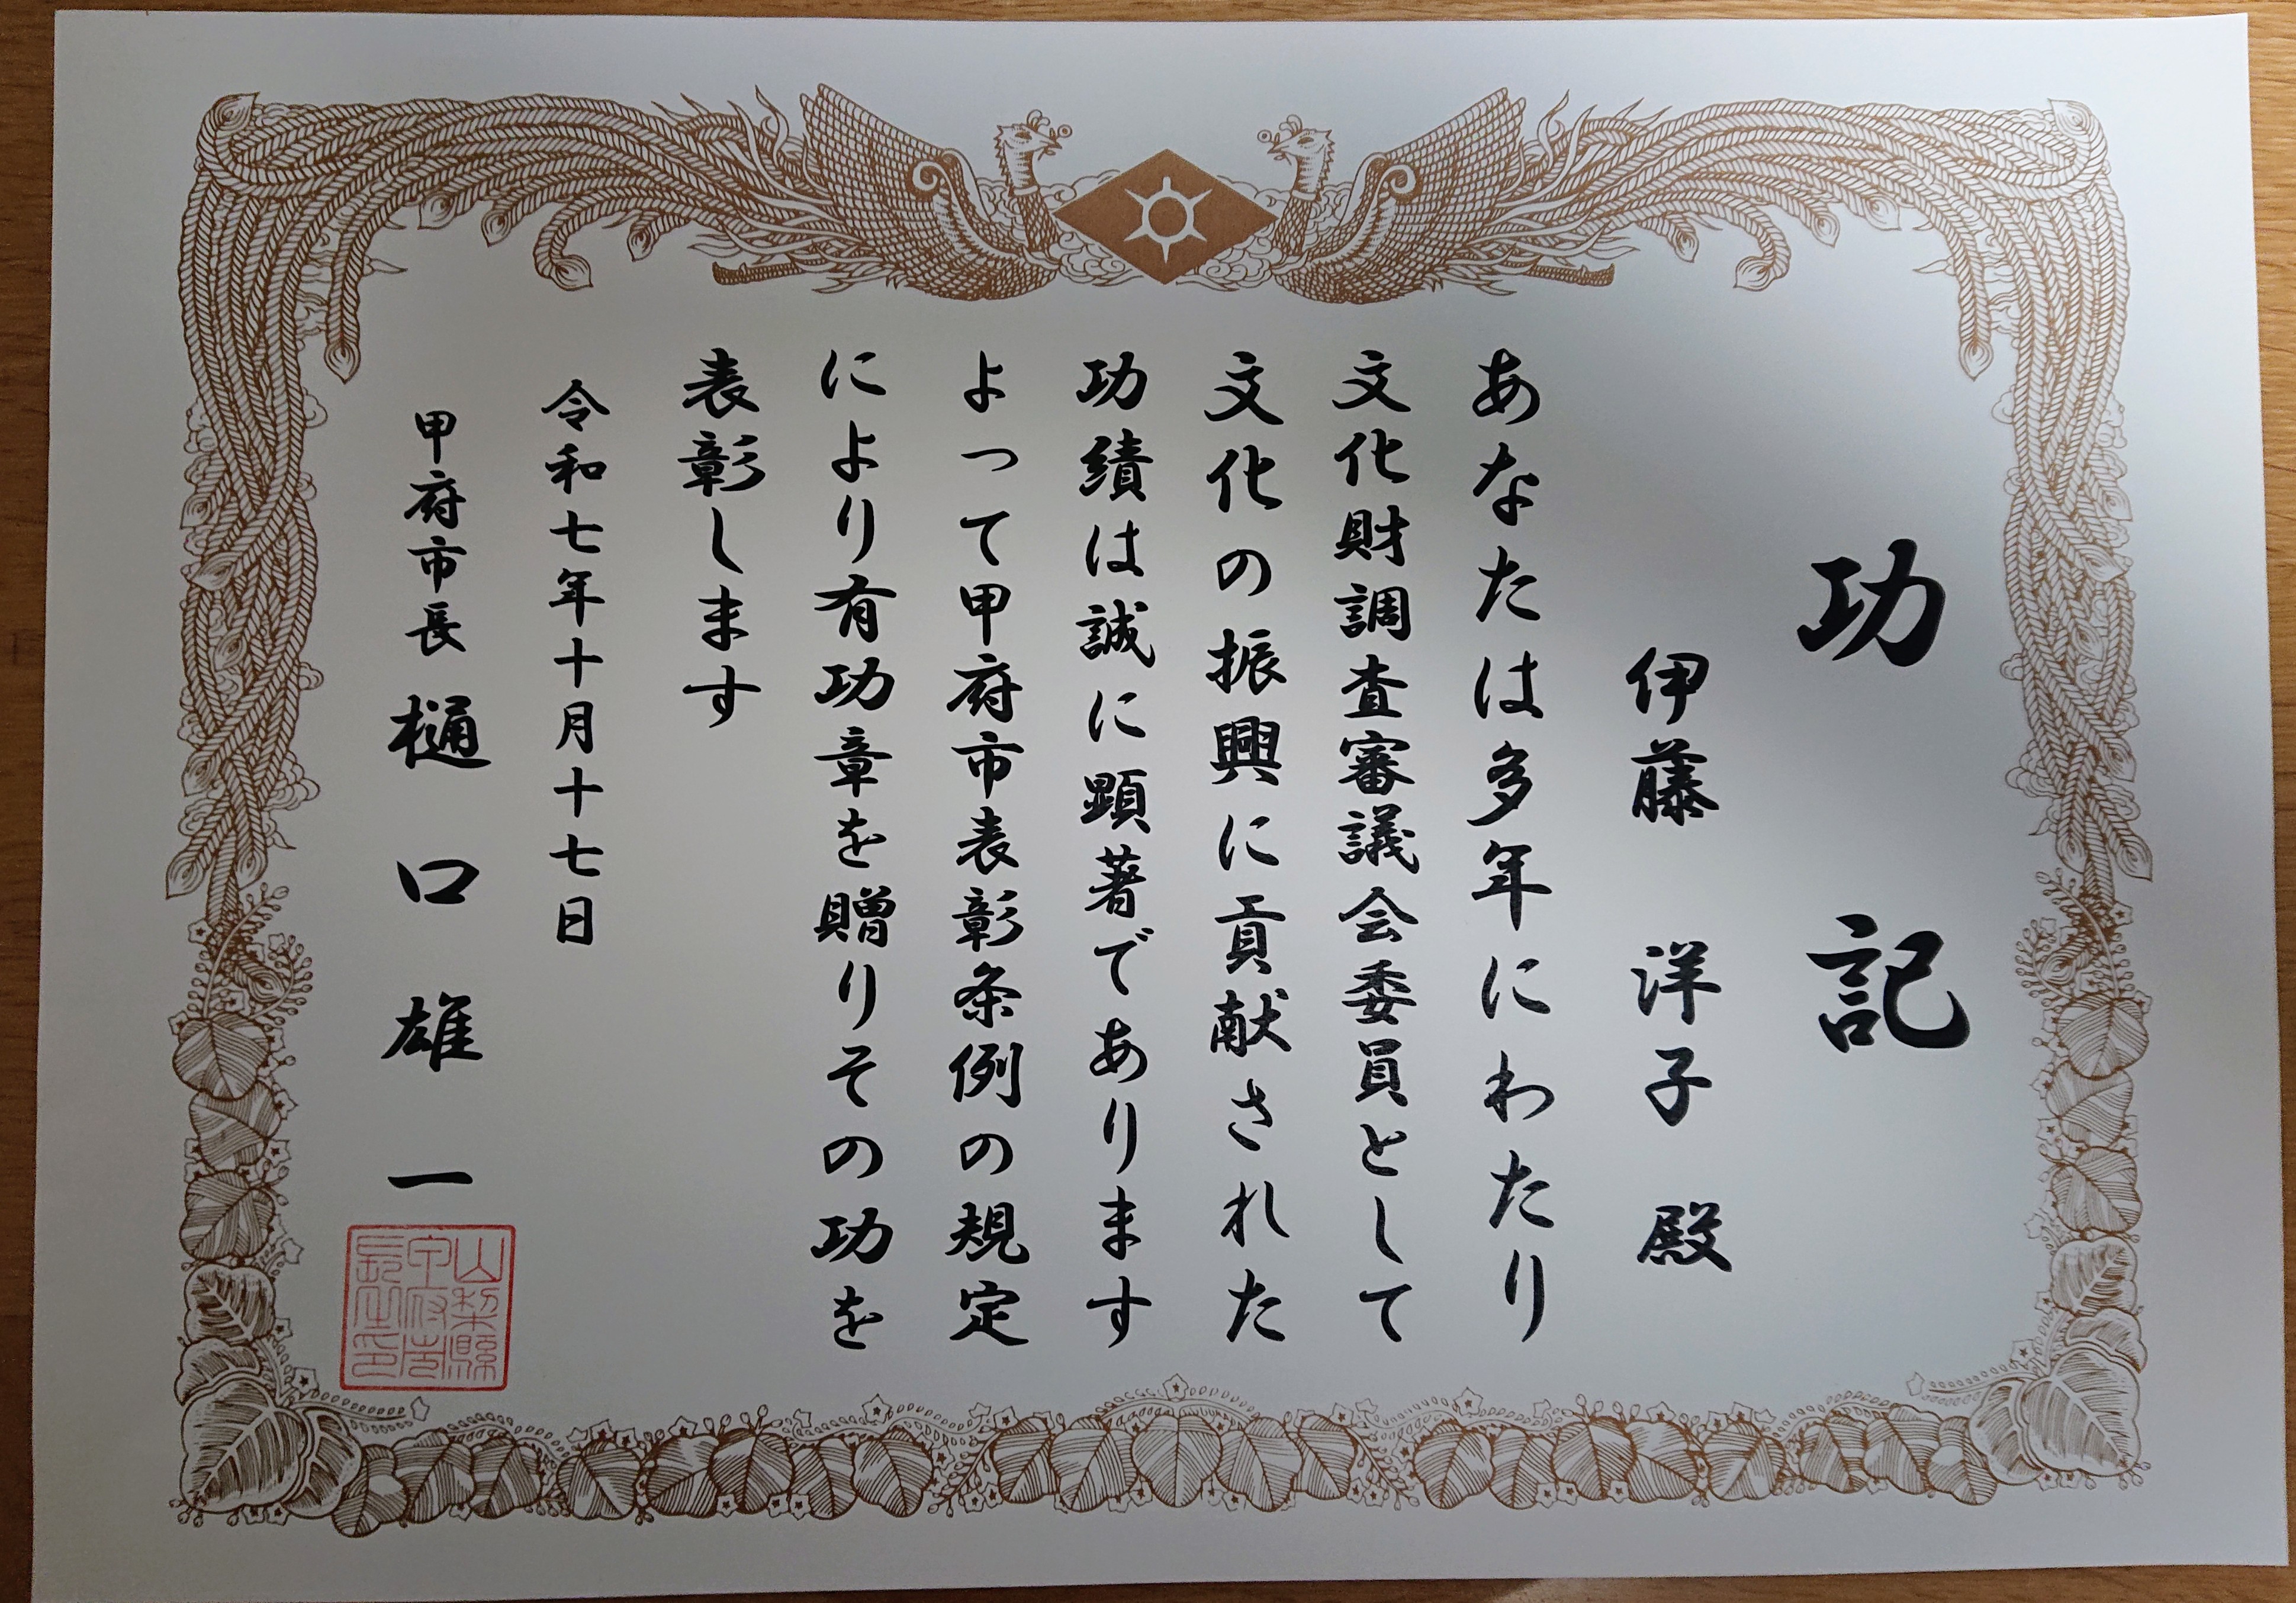 功記
伊藤洋子殿
あなたは多年にわたり
文化財調査審議会委員として
文化の振興に貢献された
功績は誠に顕著であります
よって甲府市表彰条例の規定
により有功章を贈りその功を
表彰します
令和七年十月十七日
甲府市長 樋口雄一
山梨縣
甲府市
長之印